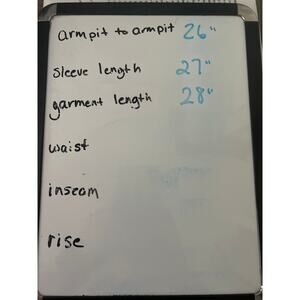 armpit to armpit 26"
sleeve length 27"
garment length 28"
waist
inseam
rise